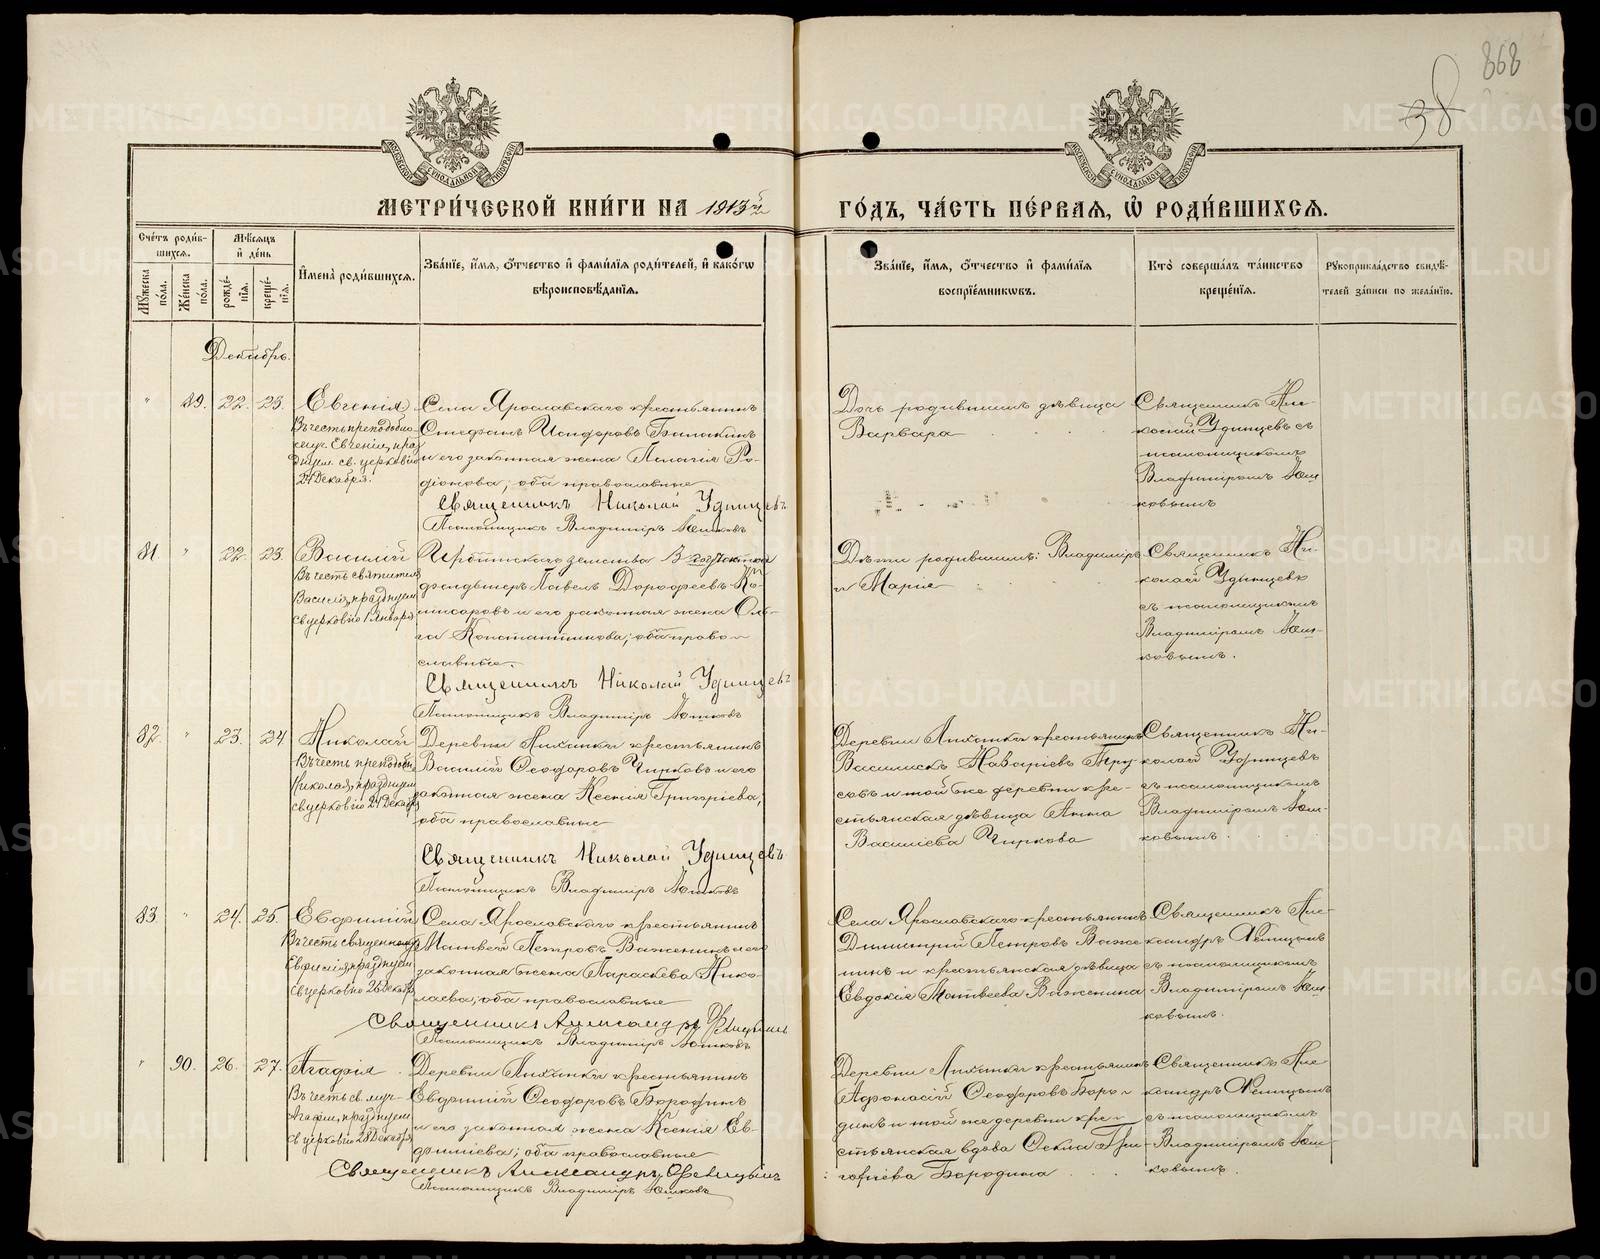 868
38
МЕТРИЧЕСКОЙ КНИГИ НА 1913й
ГОДЪ, ЧАСТЬ ПЕРВАЯ, Ѡ РОДИВШИХСЯ.
Счетъ родившихся.
Мужеска пола.
Женска пола.
Мѣсяцъ и день
рожденія.
крещенія.
Имена родившихся.
Званіе, имя, отчество и фамилія родителей, и какогѡ
вѣроисповѣданія.
Званіе, имя, отчество и фамилія
воспріемникѡвъ.
Кто совершалъ таинство
крещенія.
Рукоприкладство свидѣтелей записи по желанію.
Декабрь.
" 89. 22. 23. Евгенія
Въ честь преподобно-
муч. Евгеніи, праз
днуем. св. церковію
24 Декабря.
Села Ярославскаго крестьянинъ
Стефанъ Исидоровъ
и его законная жена Пелагія Ро-
діонова; оба православные
Священникъ Николай Удинцевъ
Псаломщикъ Владиміръ Юшковъ
Дочь родившихъ дѣвица
Варвара
Священникъ Ни-
колай Удинцевъ съ
псаломщикомъ
Владиміромъ Юш-
ковымъ
81 " 22. 23. Василій
Въ честь святителя
Василія, празднуем
св. церковію 1 Января
Ирбитскаго земства
фельдшеръ Павелъ Дорофеевъ Ко-
мисаровъ и его законная жена Оль-
га Константинова; оба право-
славные.
Священникъ Николай Удинцевъ
Псаломщикъ Владиміръ Юшковъ
Дѣти родившихъ: Владиміръ
и Марія
Священникъ Ни-
колай Удинцевъ
съ псаломщикомъ
Владиміромъ Юш-
ковымъ.
82. " 23. 24 Николай
Въ честь преподобн
Николая, празднуем
св. церковію 24 Декабря
Деревни крестьянинъ
Василій Ѳеодоровъ Чирковъ и его
законная жена Ксенія Григоріева,
оба православные
Священникъ Николай Удинцевъ
Псаломщикъ Владиміръ Юшковъ
Деревни крестьянинъ
и той же деревни кре-
стьянская дѣвица Анна
Василіева Чиркова
Священникъ Ни-
колай Удинцевъ
съ псаломщикомъ
Владиміромъ Юш-
ковымъ
83 " 24. 25. Евфимій
Въ честь священному
Евфимія, празднуем
св. церковію 28 декабр
Села Ярославскаго крестьянинъ
Матвей Петровъ Важенинъ и его
законная жена Параскева Нико-
лаева; оба православные
Священникъ Александръ Фелицынъ
Псаломщикъ Владиміръ Юшковъ
Села Ярославскаго крестьянинъ
Димитрій Петровъ Важе
нинъ и крестьянская дѣвица
Евдокія Матвеева Важенина
Священникъ Але-
ксандръ Фелицынъ
съ псаломщикомъ
Владиміромъ Юш-
ковымъ.
" 90. 26. 27. Агафія
Въ честь св. муч.
Агафіи, празднуем
св. церковію 28 Декабря
Деревни крестьянинъ
Евфимій Ѳеодоровъ Бородинъ
и его законная жена Ксенія Ев-
фиміева; оба православные
Священникъ Александръ Фелицынъ
Псаломщикъ Владиміръ Юшковъ
Деревни крестьянинъ
Афонасій Ѳеодоровъ Боро-
динъ и той же деревни кре-
стьянская вдова Ѳекла Гри-
горіева Бородина
Священникъ Але-
ксандръ Фелицынъ
съ псаломщикомъ
Владиміромъ Юш-
ковымъ.
METRIKI.GASO-URAL.RU